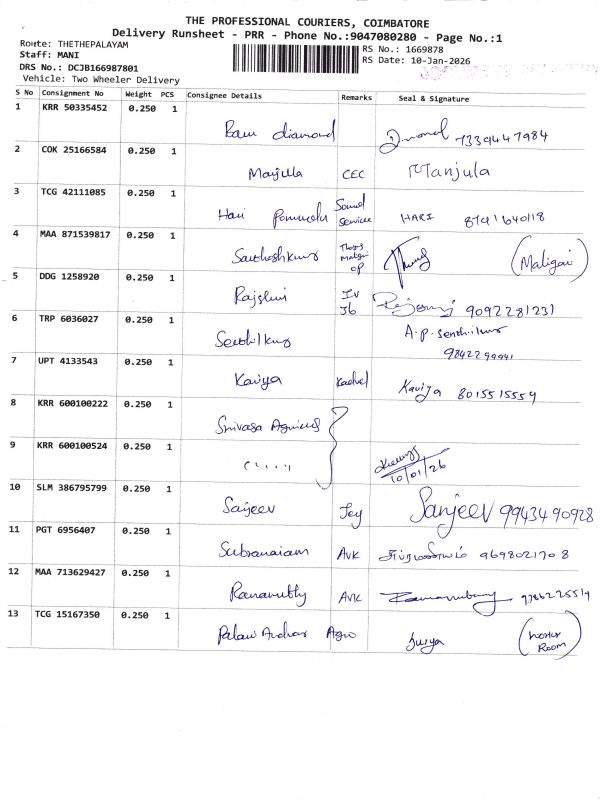 THE PROFESSIONAL COURIERS, COIMBATORE
Delivery Runsheet - PRR - Phone No.:9047080280 - Page No.:1
Route: THETHEPALAYAM
RS No.: 1669878
Staff: MANI
RS Date: 10-Jan-2026
DRS No.: DCJB166987801
Vehicle: Two Wheeler Delivery
S No Consignment No Weight PCS Consignee Details Remarks Seal & Signature
1 KRR 50335452 0.250 1 Ram diamond 7339447984
2 COK 25166584 0.250 1 Manjula CEC Manjula
3 TCG 42111085 0.250 1 Hari Sound Service HARI 8741640118
4 MAA 871539817 0.250 1 (Maligai)
5 DDG 1258920 0.250 1 9092281231
6 TRP 6036027 0.250 1 A.P. Senthilkumar
9842299941
7 UPT 4133543 0.250 1 Kaviya Kaviya 8015515559
8 KRR 600100222 0.250 1
9 KRR 600100524 0.250 1 10/01/26
10 SLM 386795799 0.250 1 Sanjeev Jey Sanjeev 99434 90928
11 PGT 6956407 0.250 1 AVK 9698021708
12 MAA 713629427 0.250 1
13 TCG 15167350 0.250 1 Agro Surya Room